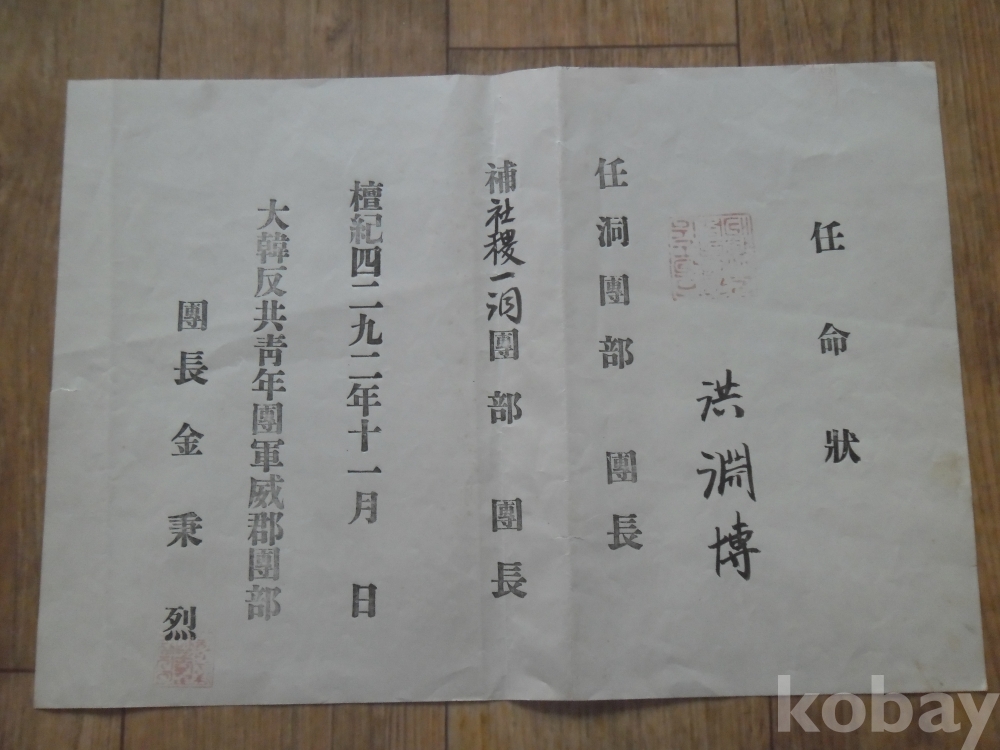 任命狀
洪淵博
任洞團部 團長
補社稷一洞團部 團長
檀紀四二九二年十一月 日
大韓反共靑年團軍威郡團部
團長 金秉烈
kobay